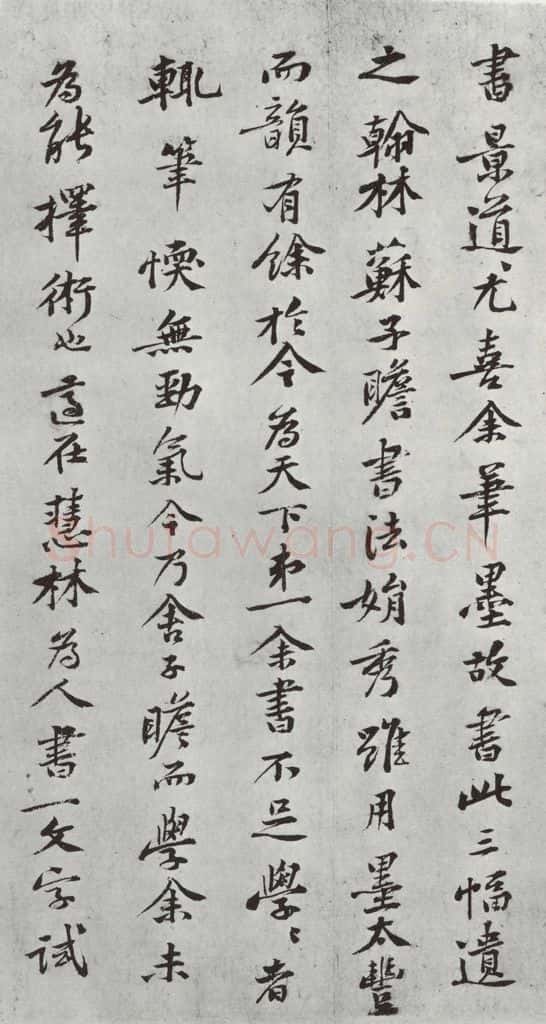 書景道尤喜余筆墨故書此三幅遺
之翰林蘇子瞻書法娟秀雖用墨太豐
而韻有餘於今為天下第一余書不足學學者
輒筆愞無勁氣今乃舍子瞻而學余未
為能擇術也適在慧林為人書一文字試
Shufawang.CN